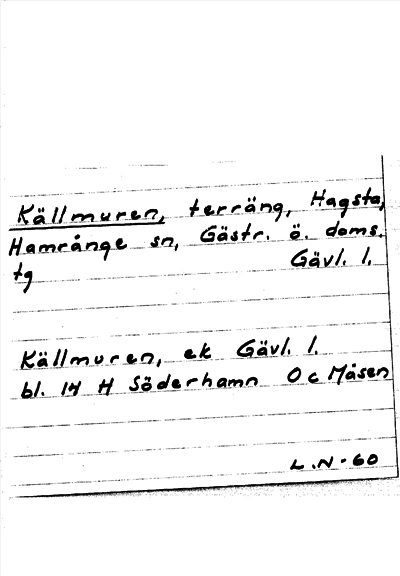 Källmuren, terräng, Hagsta,
Hamrånge sn, Gästr. ö. doms.
tg Gävl. l.
Källmuren, ek Gävl. l.
bl. 14 H Söderhamn 0 c Måsen
L.N-60